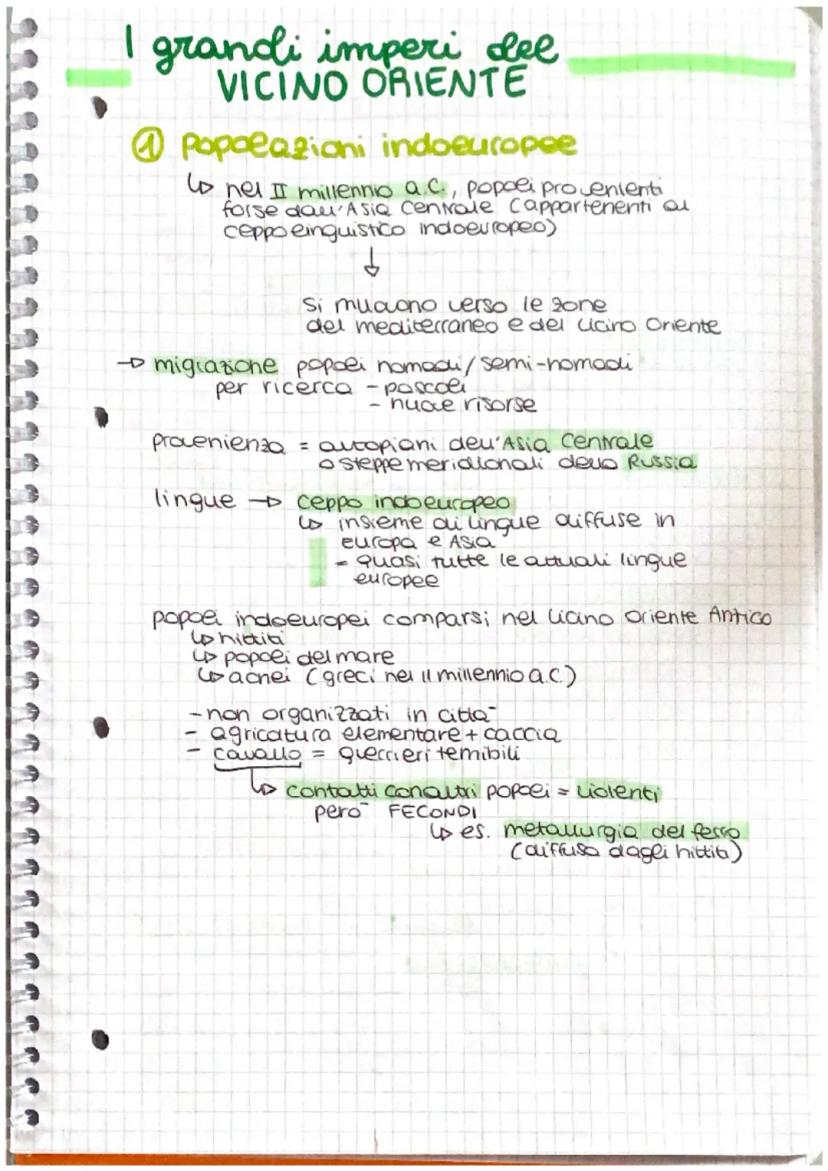 I grandi imperi del
VICINO ORIENTE
① Popolazioni indoeuropee
↳ nel II millennio a.C., popoli provenienti
forse dall'Asia Centrale (appartenenti al
ceppo linguistico indoeuropeo)
↓
Si muovono verso le zone
del mediterraneo e del vicino Oriente
→ migrazione popoli nomadi/semi-nomadi
per ricerca - pascoli
- nuove risorse
provenienza = altopiani dell'Asia Centrale
o steppe meridionali della Russia
lingue → ceppo indoeuropeo
↳ insieme di lingue diffuse in
europa e Asia
- quasi tutte le attuali lingue
europee
popoli indoeuropei comparsi nel vicino Oriente Antico
↳ hittiti
↳ popoli del mare
↳ achei (greci nel II millennio a.C.)
- non organizzati in città
- agricoltura elementare + caccia
- cavallo = guerrieri temibili
↳ contatti con altri popoli = violenti
però FECONDI
↳ es. metallurgia del ferro
(diffusa dagli hittiti)